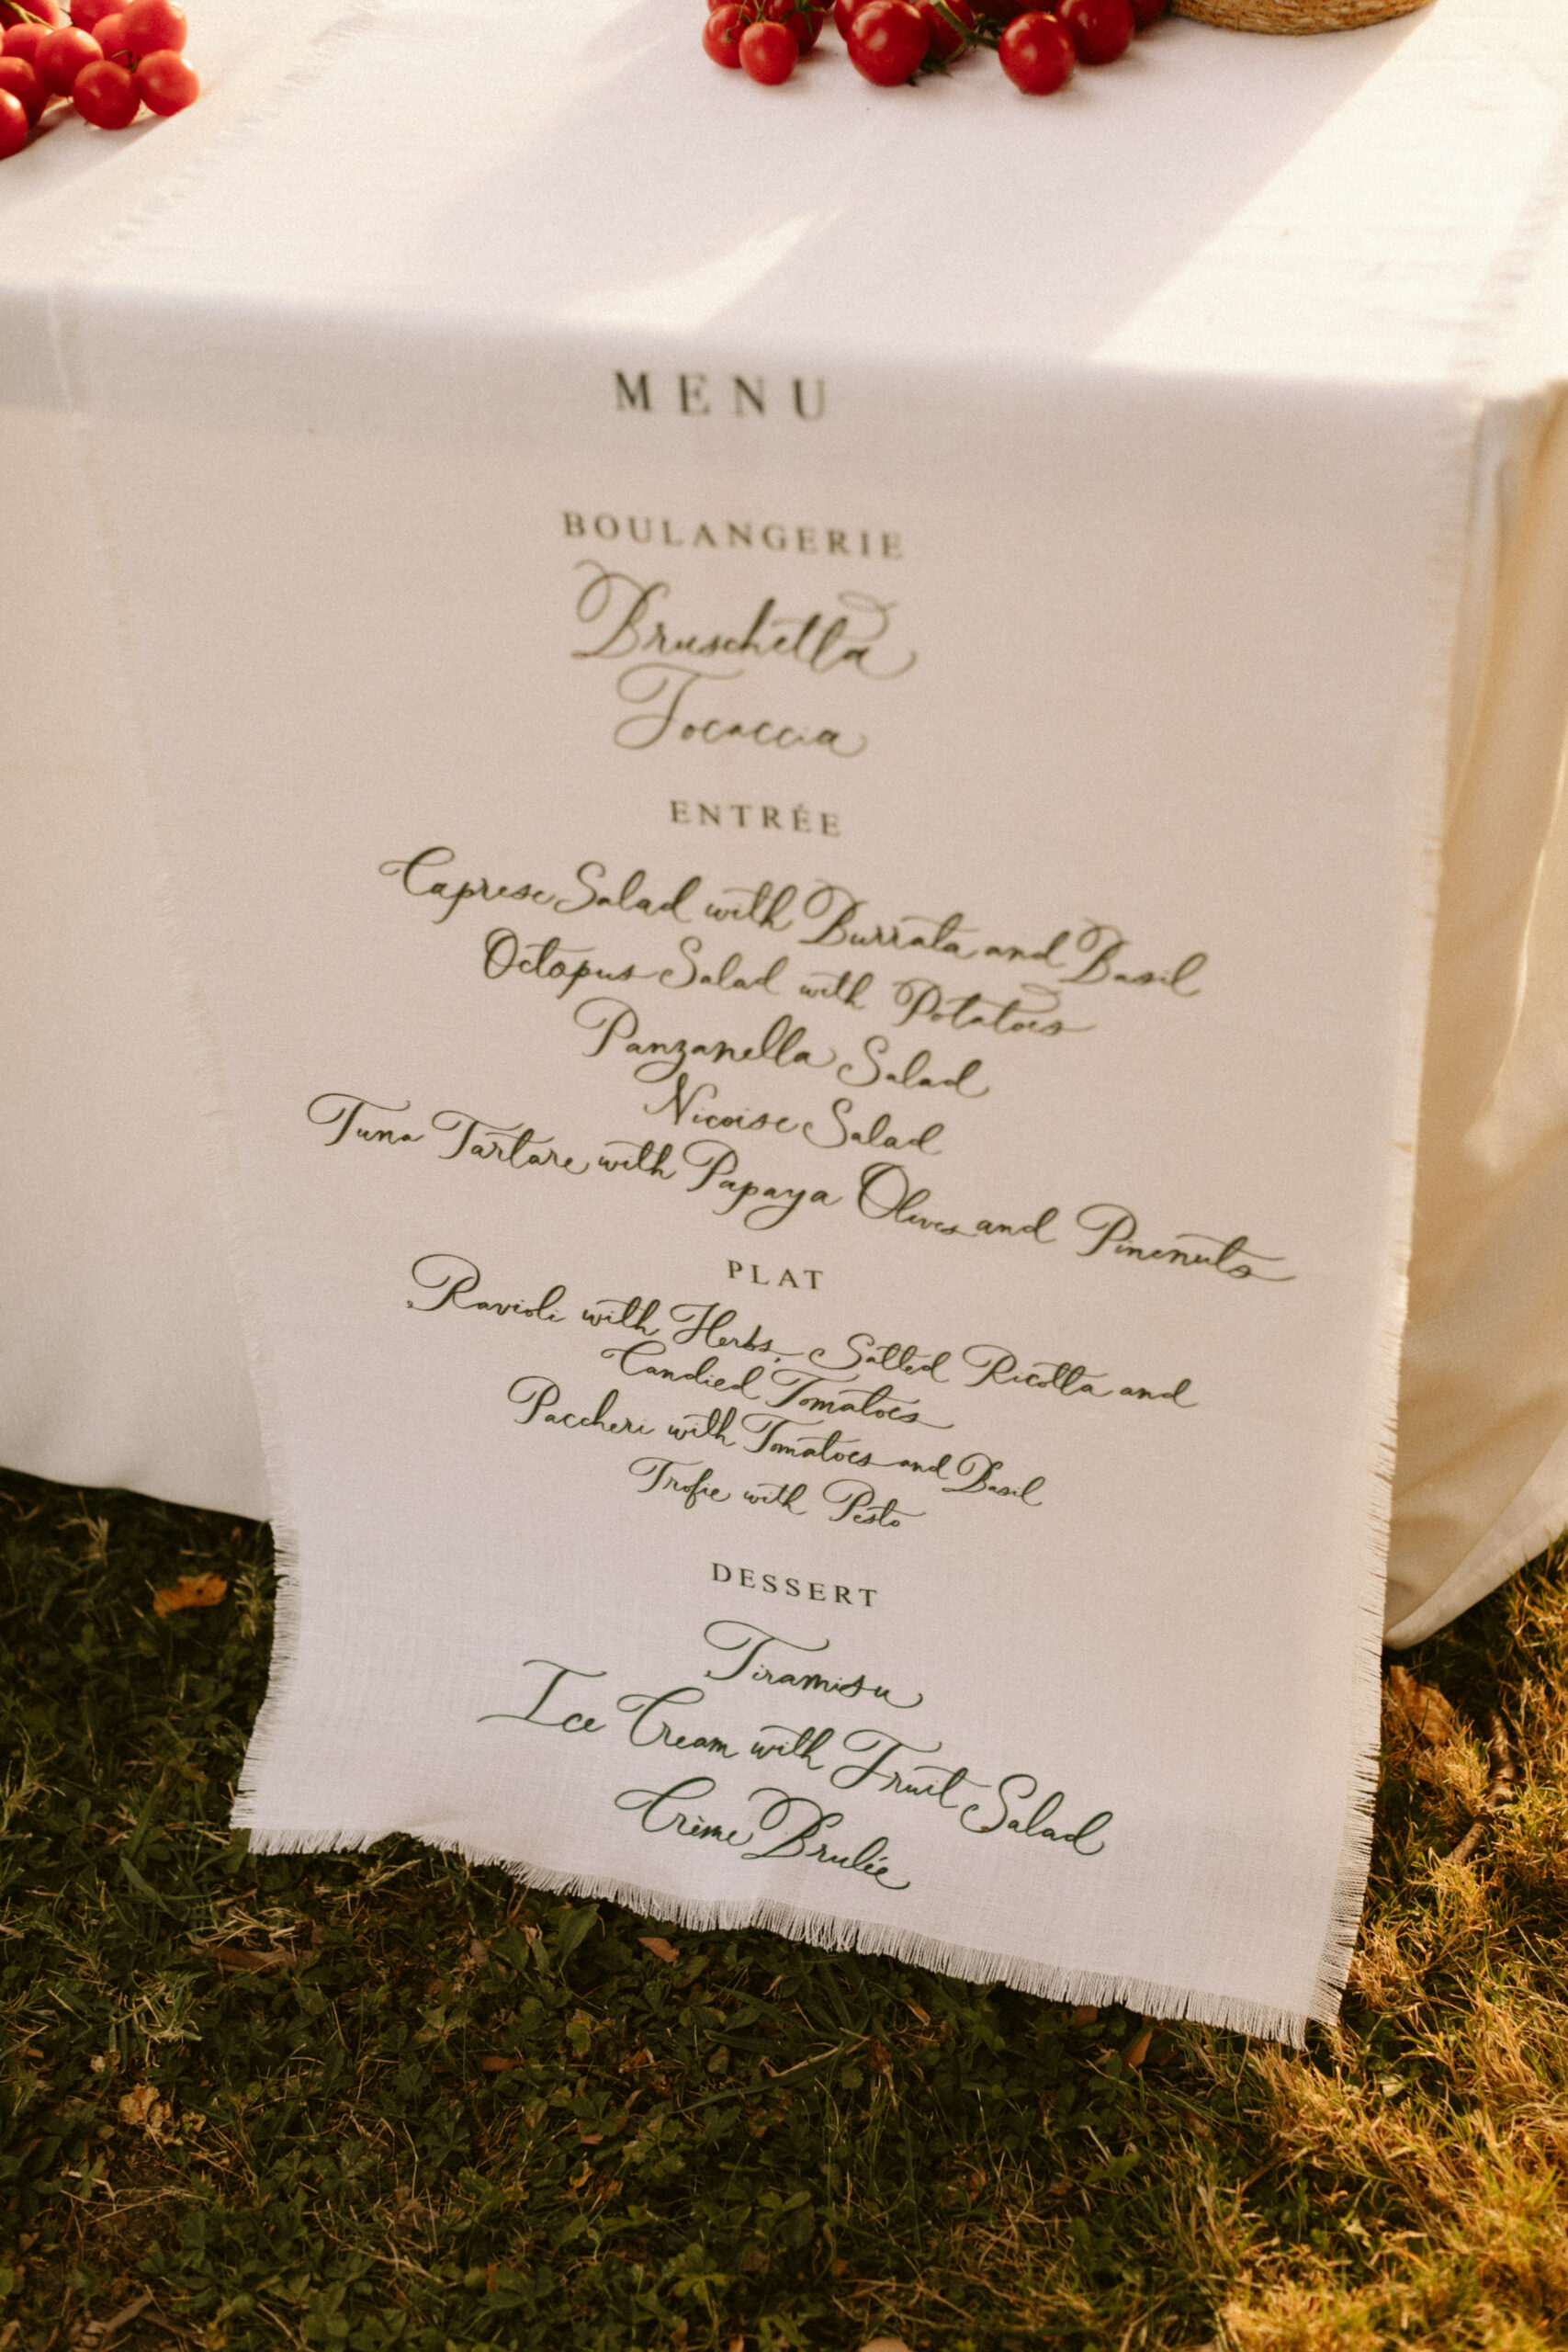 MENU
BOULANGERIE
Bruschetta
Focaccia
ENTRÉE
Caprese Salad with Burrata and Basil
Octopus Salad with Potatoes
Panzanella Salad
Nicoise Salad
Tuna Tartare with Papaya Olives and Pinenuts
PLAT
Ravioli with Herbs, Salted Ricotta and
Candied Tomatoes
Paccheri with Tomatoes and Basil
Trofie with Pesto
DESSERT
Tiramisu
Ice Cream with Fruit Salad
Crème Brulée